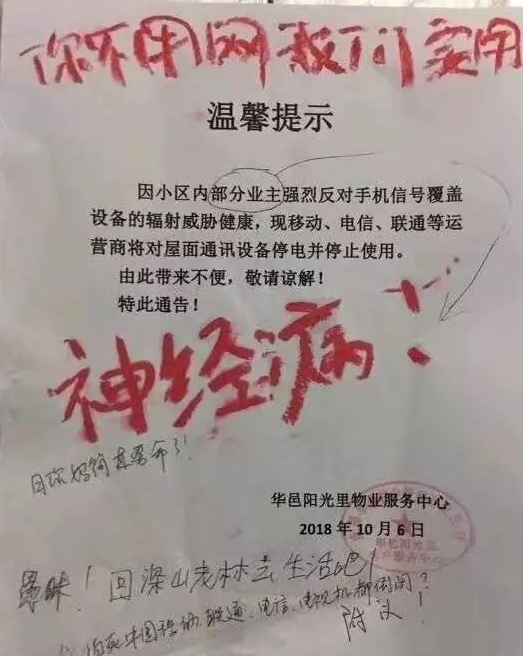 你不用网我们要用
温馨提示
因小区内部分业主强烈反对手机信号覆盖
设备的辐射威胁健康，现移动、电信、联通等运
营商将对屋面通讯设备停电并停止使用。
由此带来不便，敬请谅解！
特此通告！
神经病！
华邑阳光里物业服务中心
2018年10月6日
华邑阳光里
客户服务中心
愚昧！回深山老林去生活吧！
怕死 中国移动 联通、电信、电视机都倒闭？
附议！